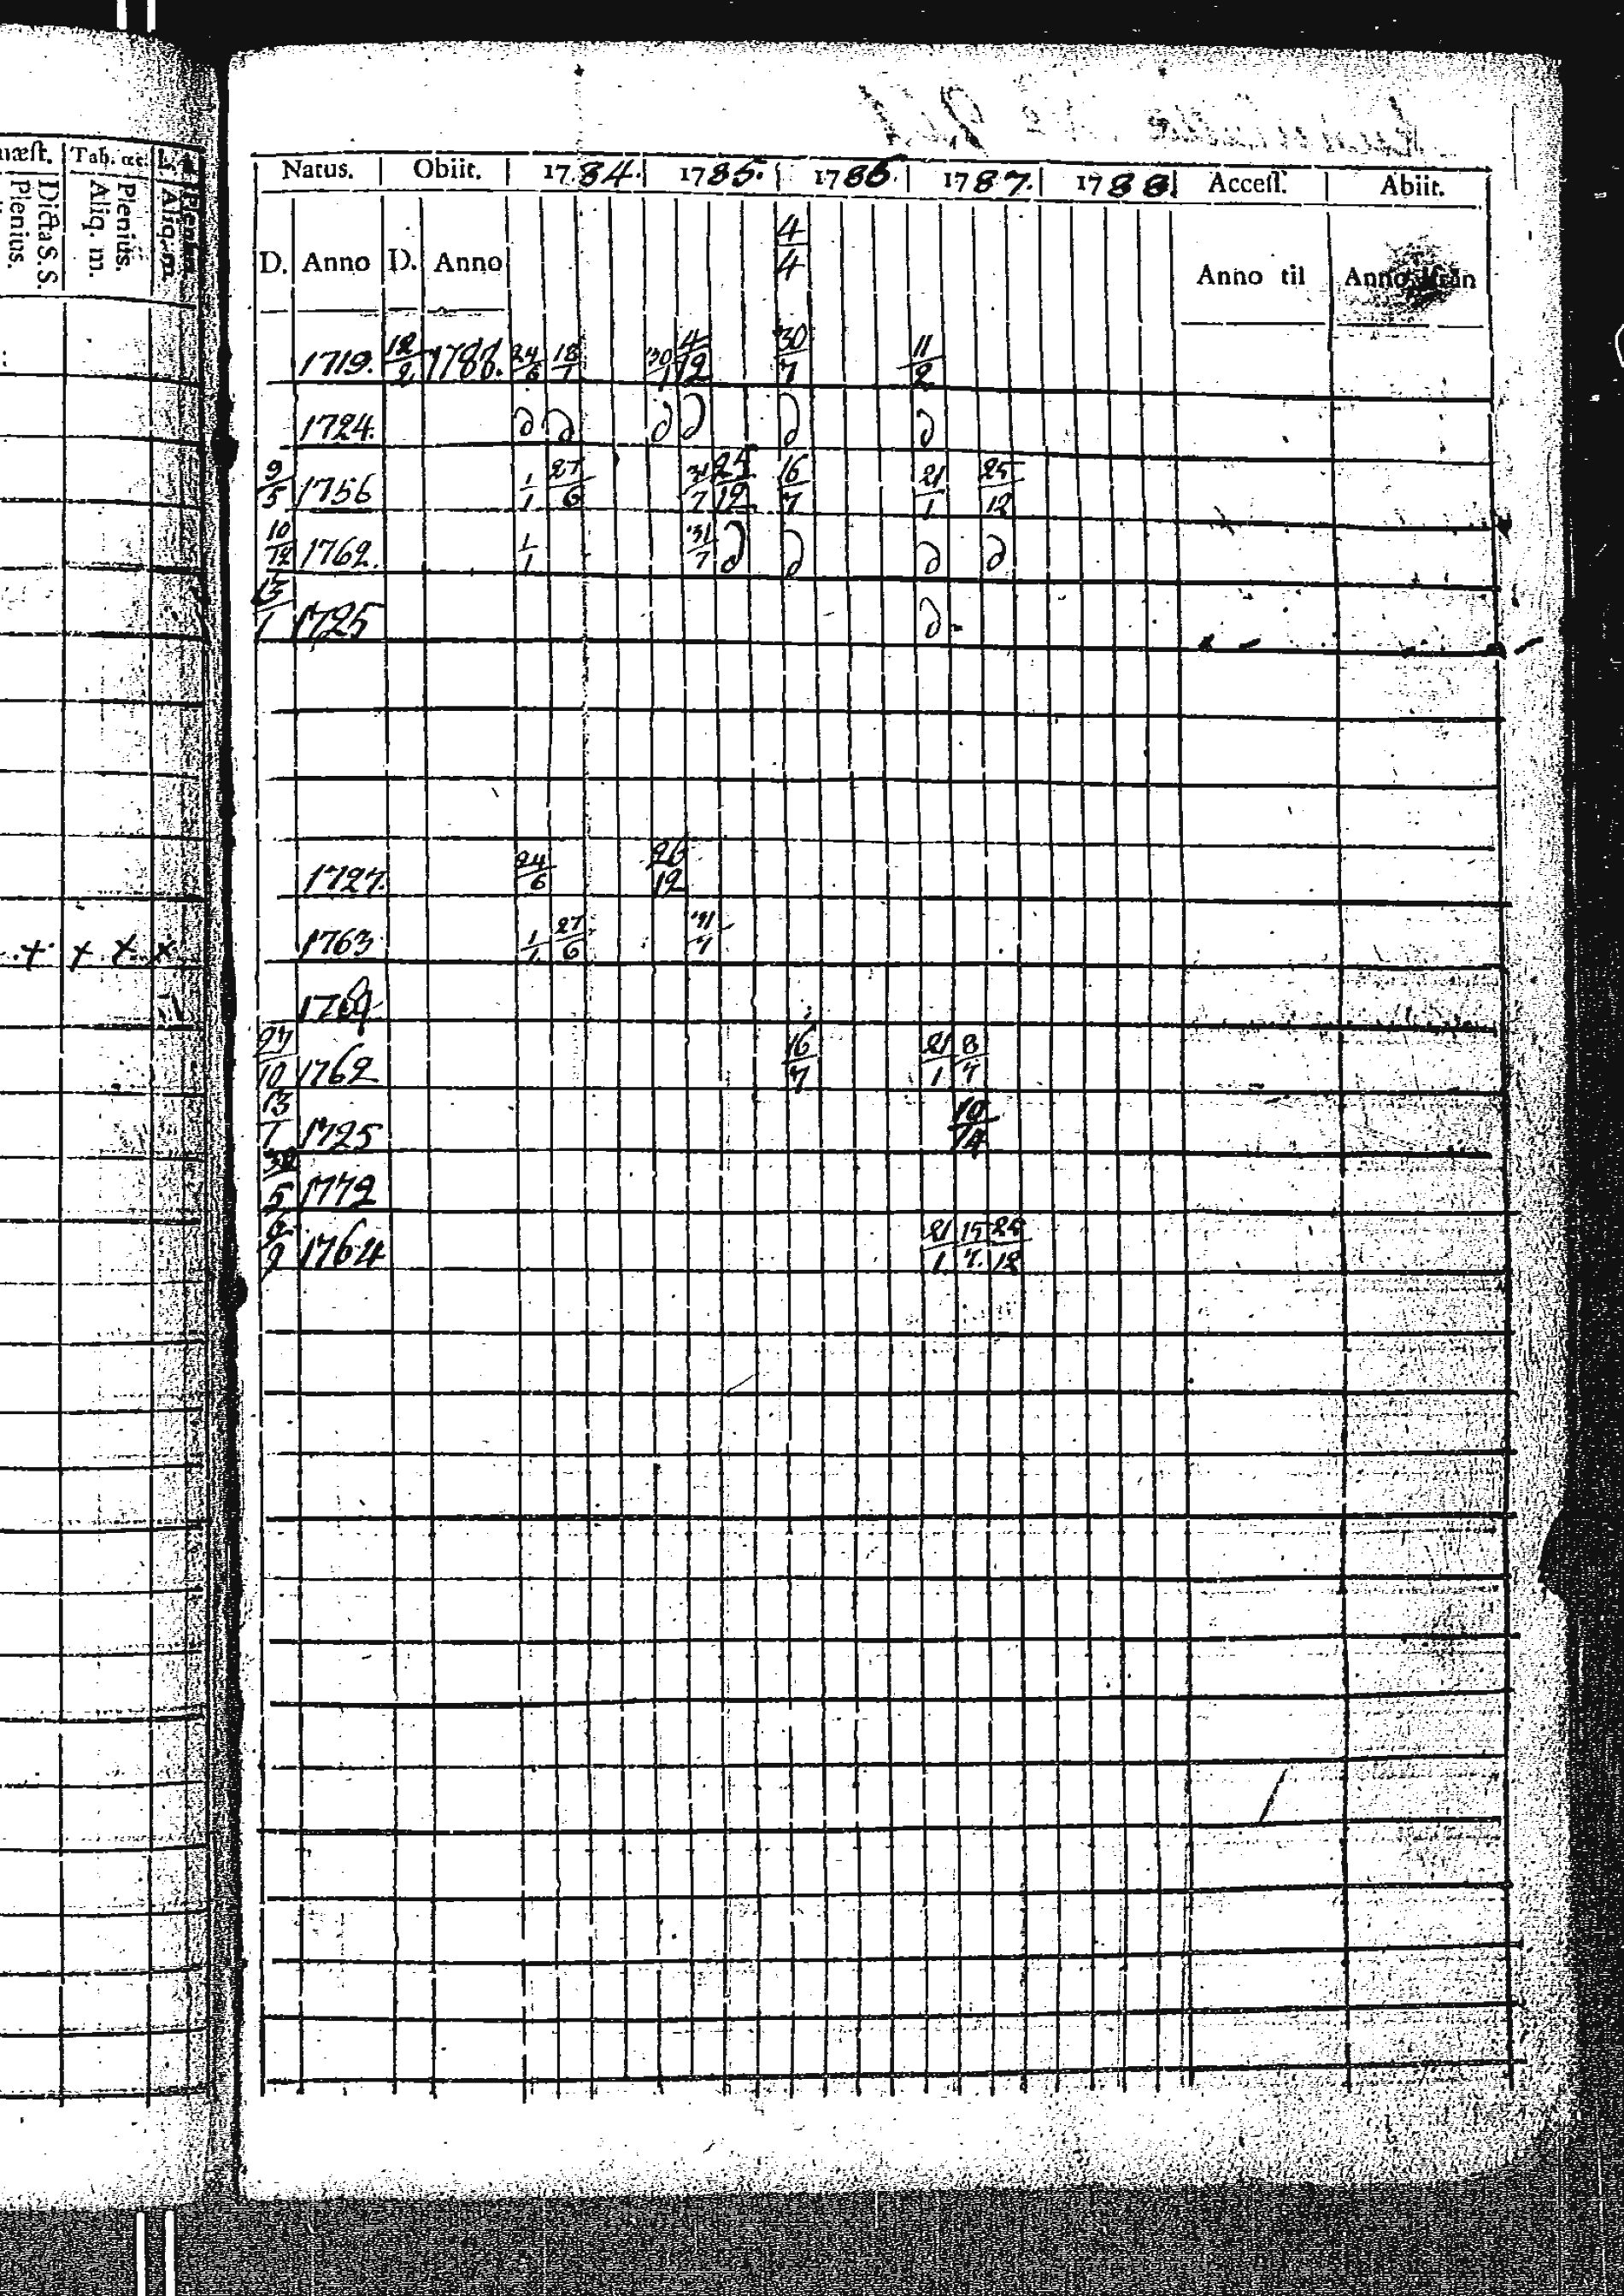 næst. Tab. œc.
Dicta S. S. Plenius. Plenius. Aliq. m. Aliq. m.
Natus. Obiit. 1784. 1785. 1786. 1787. 1788. Access. Abiit.
D. Anno D. Anno 4/4 Anno til Anno ifrån
1719. 12/2 1788. 24/6 18/1 30/1 4/12 30/7 11/2
1724. d d d d d d
9/5 1756 1/1 27/6 31/7 25/12 16/7 21/1 25/12
10/12 1762. 1/1 31/7 d d d d
13/1 1725 d
1727. 24/6 26/12
x x x x 1763 1/1 27/6 31/7
1769
27/10 1762 16/7 21/1 8/7
13/1 1725
30/5 1772
1764 21/1 15/7